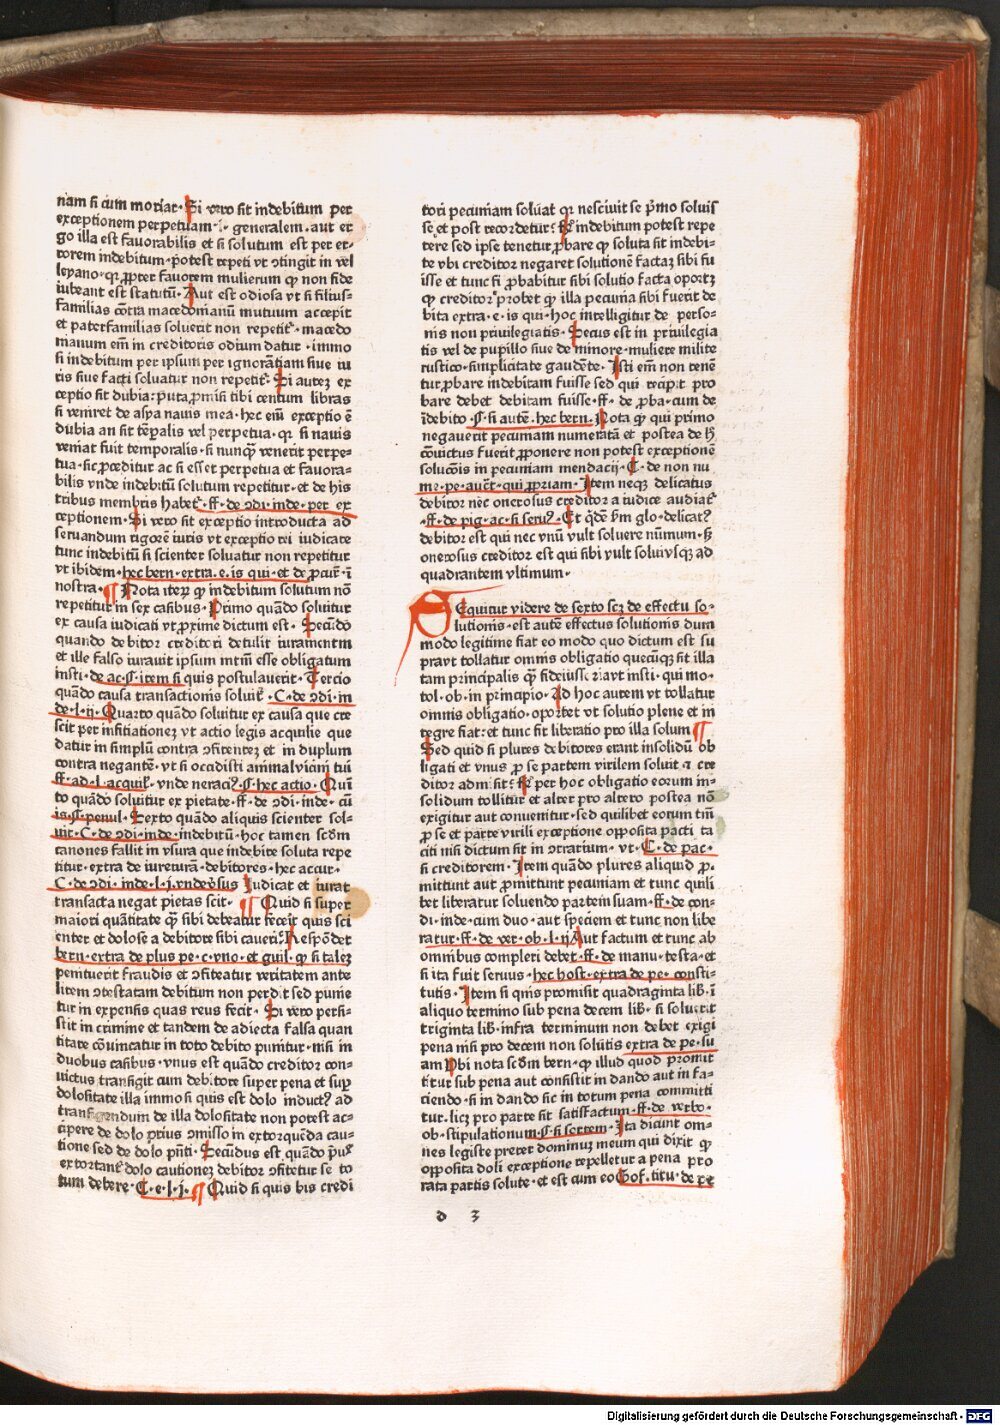 nam si cum moriar · Si vero sit indebitum per
exceptionem perpetuam ·i· generalem · aut er
go illa est fauorabilis et si solutum est per er-
rorem indebitum · potest repeti vt ↄtingit in vel
leyano · qꝛ ꝓpter fauorem mulierum qͥ non fide
iubeant est statutū · Aut est odiosa vt si filius-
familias cōtra macedonianū mutuum accepit
et paterfamilias soluerit non repetit᷑ · macedo
nianum em̄ in creditoris odium datur · immo
si indebitum per ipsum per ignorātiam siue iu
ris siue facti soluatur non repetit᷑ · Si auteꝫ ex
ceptio sit dubia : puta ꝓmisi tibi centum libras
si veniret de asya nauis mea · hec em̄ exceptio ē
dubia an sit tēꝑalis vel perpetua · qꝛ si nauis
veniat fuit temporalis · si nunqͣꝫ venerit perpe-
tua · sic ꝓceditur ac si esset perpetua et fauora-
bilis vnde indebitū solutum repetitur · et de his
tribus membris habet᷑ · ff · de ↄdi · inde · per ex
ceptionem · Si vero sit exceptio introducta ad
seruandum rigorē iuris vt exceptio rei iudicate
tunc indebitū si scienter soluatur non repetitur
vt ibidem · hec bern · extra · e · is qui · et de ꝓcur̄ · ī
nostra · ¶ Nota iteꝝ ꝙ indebitum solutum nō
repetitur in sex casibus · Primo quādo soluitur
ex causa iudicati vt ꝓxime dictum est · Secūdo
quando debitor creditori detulit iuramentum
et ille falso iurauit ipsum mtm̄ esse obligatum
insti · de ac · § · item si quis postulauerit · Tercio
quādo causa transactionis soluit᷑ · C · de ↄdi · in
de · l · ij · Quarto quādo soluitur ex causa que cre
scit per infitiationeꝫ vt actio legis acquilie que
datur in simplū contra ↄfitenteꝫ et in duplum
contra negantē · vt si occidisti animal vicini tui
ff · ad · l · acquil᷑ · vnde neraciꝰ · § · hec actio · Quī
to quādo soluitur ex pietate · ff · de ↄdi · inde · cū
is · § · penul · Sexto quādo aliquis scienter sol-
uit · C · de ↄdi · inde · indebitū · hoc tamen scd̄m
canones fallit in vsura que indebite soluta repe
titur · extra de iureiurā · debitores · hec accur ·
C · de ↄdi · inde · l · j · vnde v̄sus Judicat et iurat
transacta negat pietas scit · ¶ Quid si super
maiori quātitate qͣꝫ sibi debeatur fecerit quis sci
enter et dolose a debitore sibi caueri? Respōdet
bern · extra de plus pe · c · vno · et guil · ꝙ si taleꝫ
penituerit fraudis et ↄfiteatur veritatem ante
litem ↄtestatam debitum non perdit sed punie
tur in expensis quas reus fecit · Si vero persi-
stit in crimine et tandem de adiecta falsa quan
titate cōuincatur in toto debito punitur · nisi in
duobus casibus · vnus est quādo creditor con-
uictus transigit cum debitore super pena et suꝑ
dolositate illa immo si quis est dolo inductꝰ ad
transigendum de illa dolositate non potest ac-
cipere de dolo prius ↄmisso in extorquēda cau-
tione sed de dolo pn̄ti · Secundus est quādo pꝰ
extortam dolo cautioneꝫ debitor ↄfitetur se to
tum debere · C · e · l · j · ¶ Quid si quis bis credi
tori pecuniam soluat qꝛ nesciuit se p̄mo soluis
se et post recordetur : Rͦ indebitum potest repe
tere sed ipse tenetur ꝓbare ꝙ soluta sit indebi-
te vbi creditor negaret solutionē factaꝫ sibi fu
isse et tunc si ꝓbabitur sibi solutio facta oportꝫ
ꝙ creditor probet ꝙ illa pecunia sibi fuerit de
bita extra · e · is qui · hoc intelligitur de perso-
nis non priuilegiatis · Secus est in priuilegia
tis vel de pupillo siue de minore · muliere milite
rustico · simplicitate gaudēte · Isti em̄ non tenē
tur ꝓbare indebitam fuisse sed qui recipit pro
bare debet debitam fuisse · ff · de proba · cum de
īdebito · § · si autē · hec bern · Nota ꝙ qui primo
negauerit pecuniam numeratā et postea de hͦ
cōuictus fuerit ꝓponere non potest exceptionē
soluōnis in pecuniam mendacij · C · de non nu
me · pe · auēt · qui ꝓpriam · Item neqꝫ delicatus
debitor nec onerosus creditor a iudice audiat᷑
· ff · de pig · ac · si seruꝰ · Et qͥdē ẜm glo · delicatꝰ
debitor est qui nec vnū vult soluere nūmum · sꝫ
onerosus creditor est qui sibi vult solui vsqꝫ ad
quadrantem vltimum ·
Sequitur videre de sexto scꝫ de effectu so-
lutionis · est autē effectus solutionis dum
modo legitime fiat eo modo quo dictum est su
pra vt tollatur omnis obligatio quecūqꝫ sit illa
tam principalis qͣꝫ fideiussoria vt insti · qui mo ·
tol · ob · in principio · Ad hoc autem vt tollatur
omnis obligatio · oportet vt solutio plene et in
tegre fiat : et tunc fit liberatio pro illa solum ¶
Sed quid si plures debitores erant insolidū ob
ligati et vnus ꝓ se partem virilem soluit ⁊ cre
ditor admisit : Rͦ per hoc obligatio eorum in-
solidum tollitur et alter pro altero postea nō
exigitur aut conuenitur · sed quilibet eorum tm̄
ꝓ se et parte virili exceptione opposita pacti ta
citi nisi dictum sit in ↄtrarium · vt · C · de pac ·
si creditorem · Item quādo plures aliquid ꝓ-
mittunt aut ꝓmittunt pecuniam et tunc quili
bet liberatur soluendo partem suam · ff · de con-
di · inde · cum duo · aut speciem et tunc non libe
ratur · ff · de ver · ob · l · ij · Aut factum et tunc ab
omnibus compleri debet · ff · de manu · testa · et
si ita fuit seruus · hec host · extra de pe · consti-
tutis · Item si quis promisit quadraginta lib · ī
aliquo termino sub pena decem lib · si soluerit
triginta lib · infra terminum non debet exigi
pena nisi pro decem non solutis extra de pe · su
am Vbi nota scd̄m bern · ꝙ illud quod promit
titur sub pena aut consistit in dando aut in fa-
ciendo · si in dando sic in totum pena committi
tur · licꝫ pro parte sit satisfactum · ff · de verbo ·
ob · stipulationum · § · si sortem · Ita dicunt om-
nes legiste preter dominuꝫ meum qui dixit ꝙ
opposita doli exceptione repelletur a pena pro
rata partis solute · et est cum eo Gof · titu · de pe
d 3
Digitalisierung gefördert durch die Deutsche Forschungsgemeinschaft - DFG